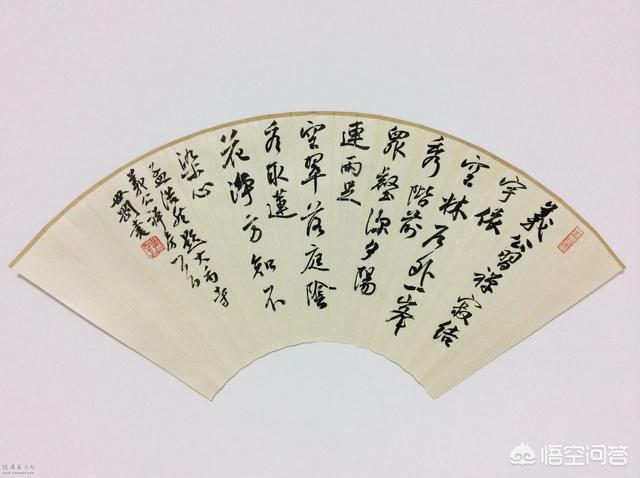 義公習禪寂結
宇依
空林戶外一峯
秀階前
衆壑深夕陽
連雨足
空翠落庭陰
看取蓮
花淨方知不
染心
孟浩然題大禹寺
義公禪房
書
悟空问答